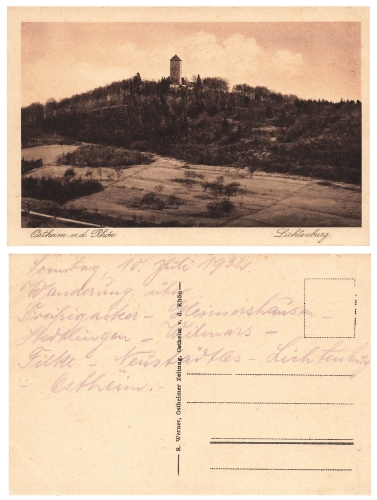 Ostheim v. d. Rhön.
Lichtenburg.
Sonntag, 10. Juli 1932.
Wanderung über
Heimershausen -
- Wilmars -
Filke - Neustädtles - Lichtenburg
- Ostheim. -
R. Werner, Ostheimer Zeitung, Ostheim v. d. Rhön